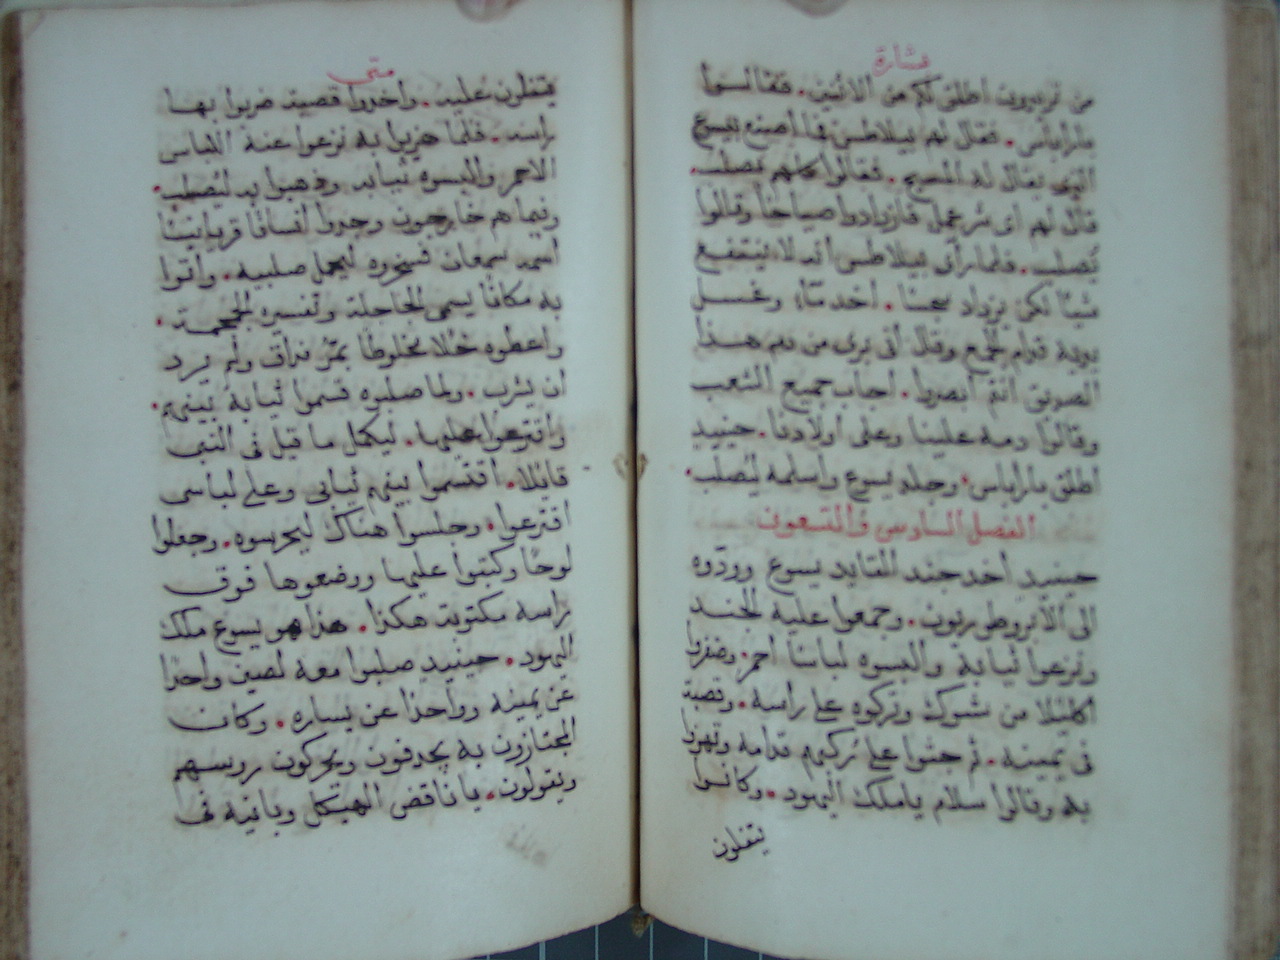 بشارة
من تريدون اطلق لكم من الاثنين. فقالوا
بارابّاس. فقال لهم بيلاطس فما اصنع بيسوع
الذي يقال له المسيح. فقالوا كلهم يصلب.
قال لهم اى شر عمل فازدادوا صياحًا وقالوا
يُصلب. فلما رأى بيلاطس أنه لا ينتفع
شيئًا لكن يزداد سجسًا. أخذ مآء وغسل
يديه قدام الجمع وقال أنى برى من دم هذا
الصديق انتم ابصروا. اجاب جميع الشعب
وقالوا دمه علينا وعلى اولادنا. حينيد
اطلق بارابّاس. وجلد يسوع واسلمه ليُصلب.
الفصل السادس والتسعون
حينيد أخد جند القايد يسوع وودّوه
الى الابروطوريون. وجمعوا عليه الجند
ونزعوا ثيابة والبسوه لباسًا احمر. وضفروا
اكليلا من شوك وتركوه على راسه. وقصبة
فى يمينه. ثم جثوا على رُكبهم قدامه وتهزوا
به وقالوا سلام ياملك اليهود. وكانوا
يتفلون
متى
يتفلون عليه. واخدوا قصبة ضربوا بها
راسه. فلما هزيوا به نزعوا عنه اللباس
الاحمر والبسوه ثيابه وذهبوا به ليُصلب.
وفيما هم خارجون وجدوا انسانًا قريانيًا
اسمه سمعان فسخروه ليحمل صليبه. واتوا
به مكانًا يسمى الجاجلة وتفسيره الجمجمة.
واعطوه خلا مخلوطًا بمُرّ فذاق ولم يرد
ان يشرب. ولما صلبوه قسموا ثيابهُ بينهم.
واقترعوا عليها. ليكمل ما قيل فى النبى
قايلا. اقتسموا بينهم ثيابى وعلى لباسى
اقترعوا. وجلسوا هناك ليحرسوه. وجعلوا
لوحًا وكتبوا عليها ووضعوها فوق
راسه مكتوبة هكذا. هذا هو يسوع ملك
اليهود. حينيد صلبوا معه لصين واحدًا
عن يمينه وواحدًا عن يساره. وكان
المجتازون به يجدفون ويحركون روسهم
ويقولون. يا ناقض الهيكل وبانيه فى